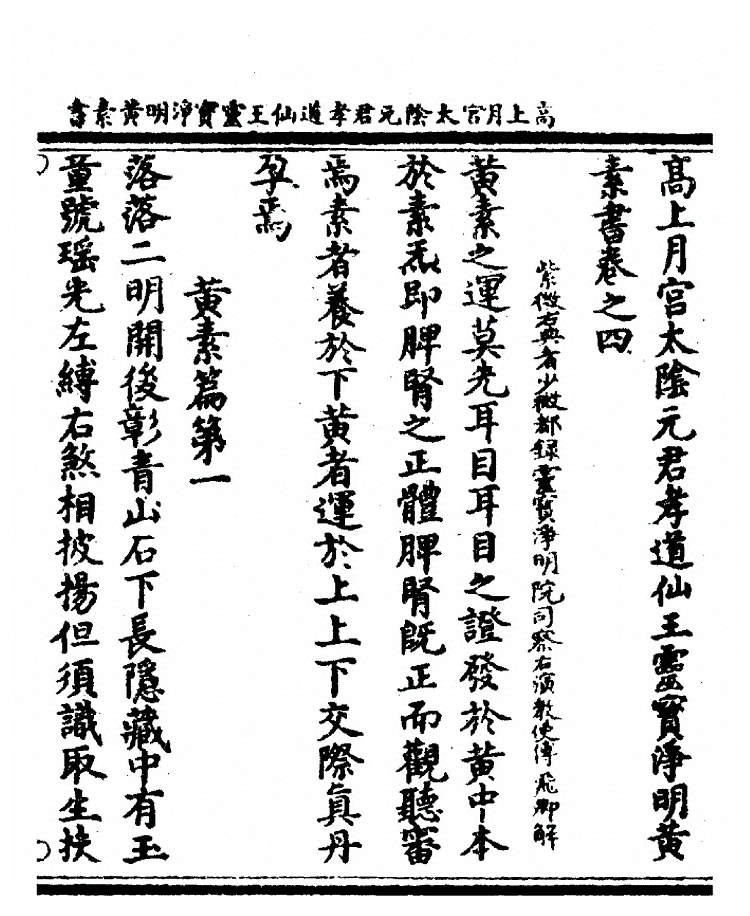 高上月宮太陰元君孝道仙王靈寳淨明黃素書
高上月宮太陰元君孝道仙王靈寳淨明黃
素書卷之四
紫微右典者少微都録靈寳淨明院司察右演教使傅飛卿解
黃素之運莫先耳目耳目之證發於黃中本
於素炁即脾腎之正體脾腎旣正而觀聽審
焉素者養於下黃者運於上上下交際眞丹
孕焉
黃素篇第一
落落二明開後彰青山石下長隱藏中有玉
童號瑤光左縛右煞相披揚但須識取生扶